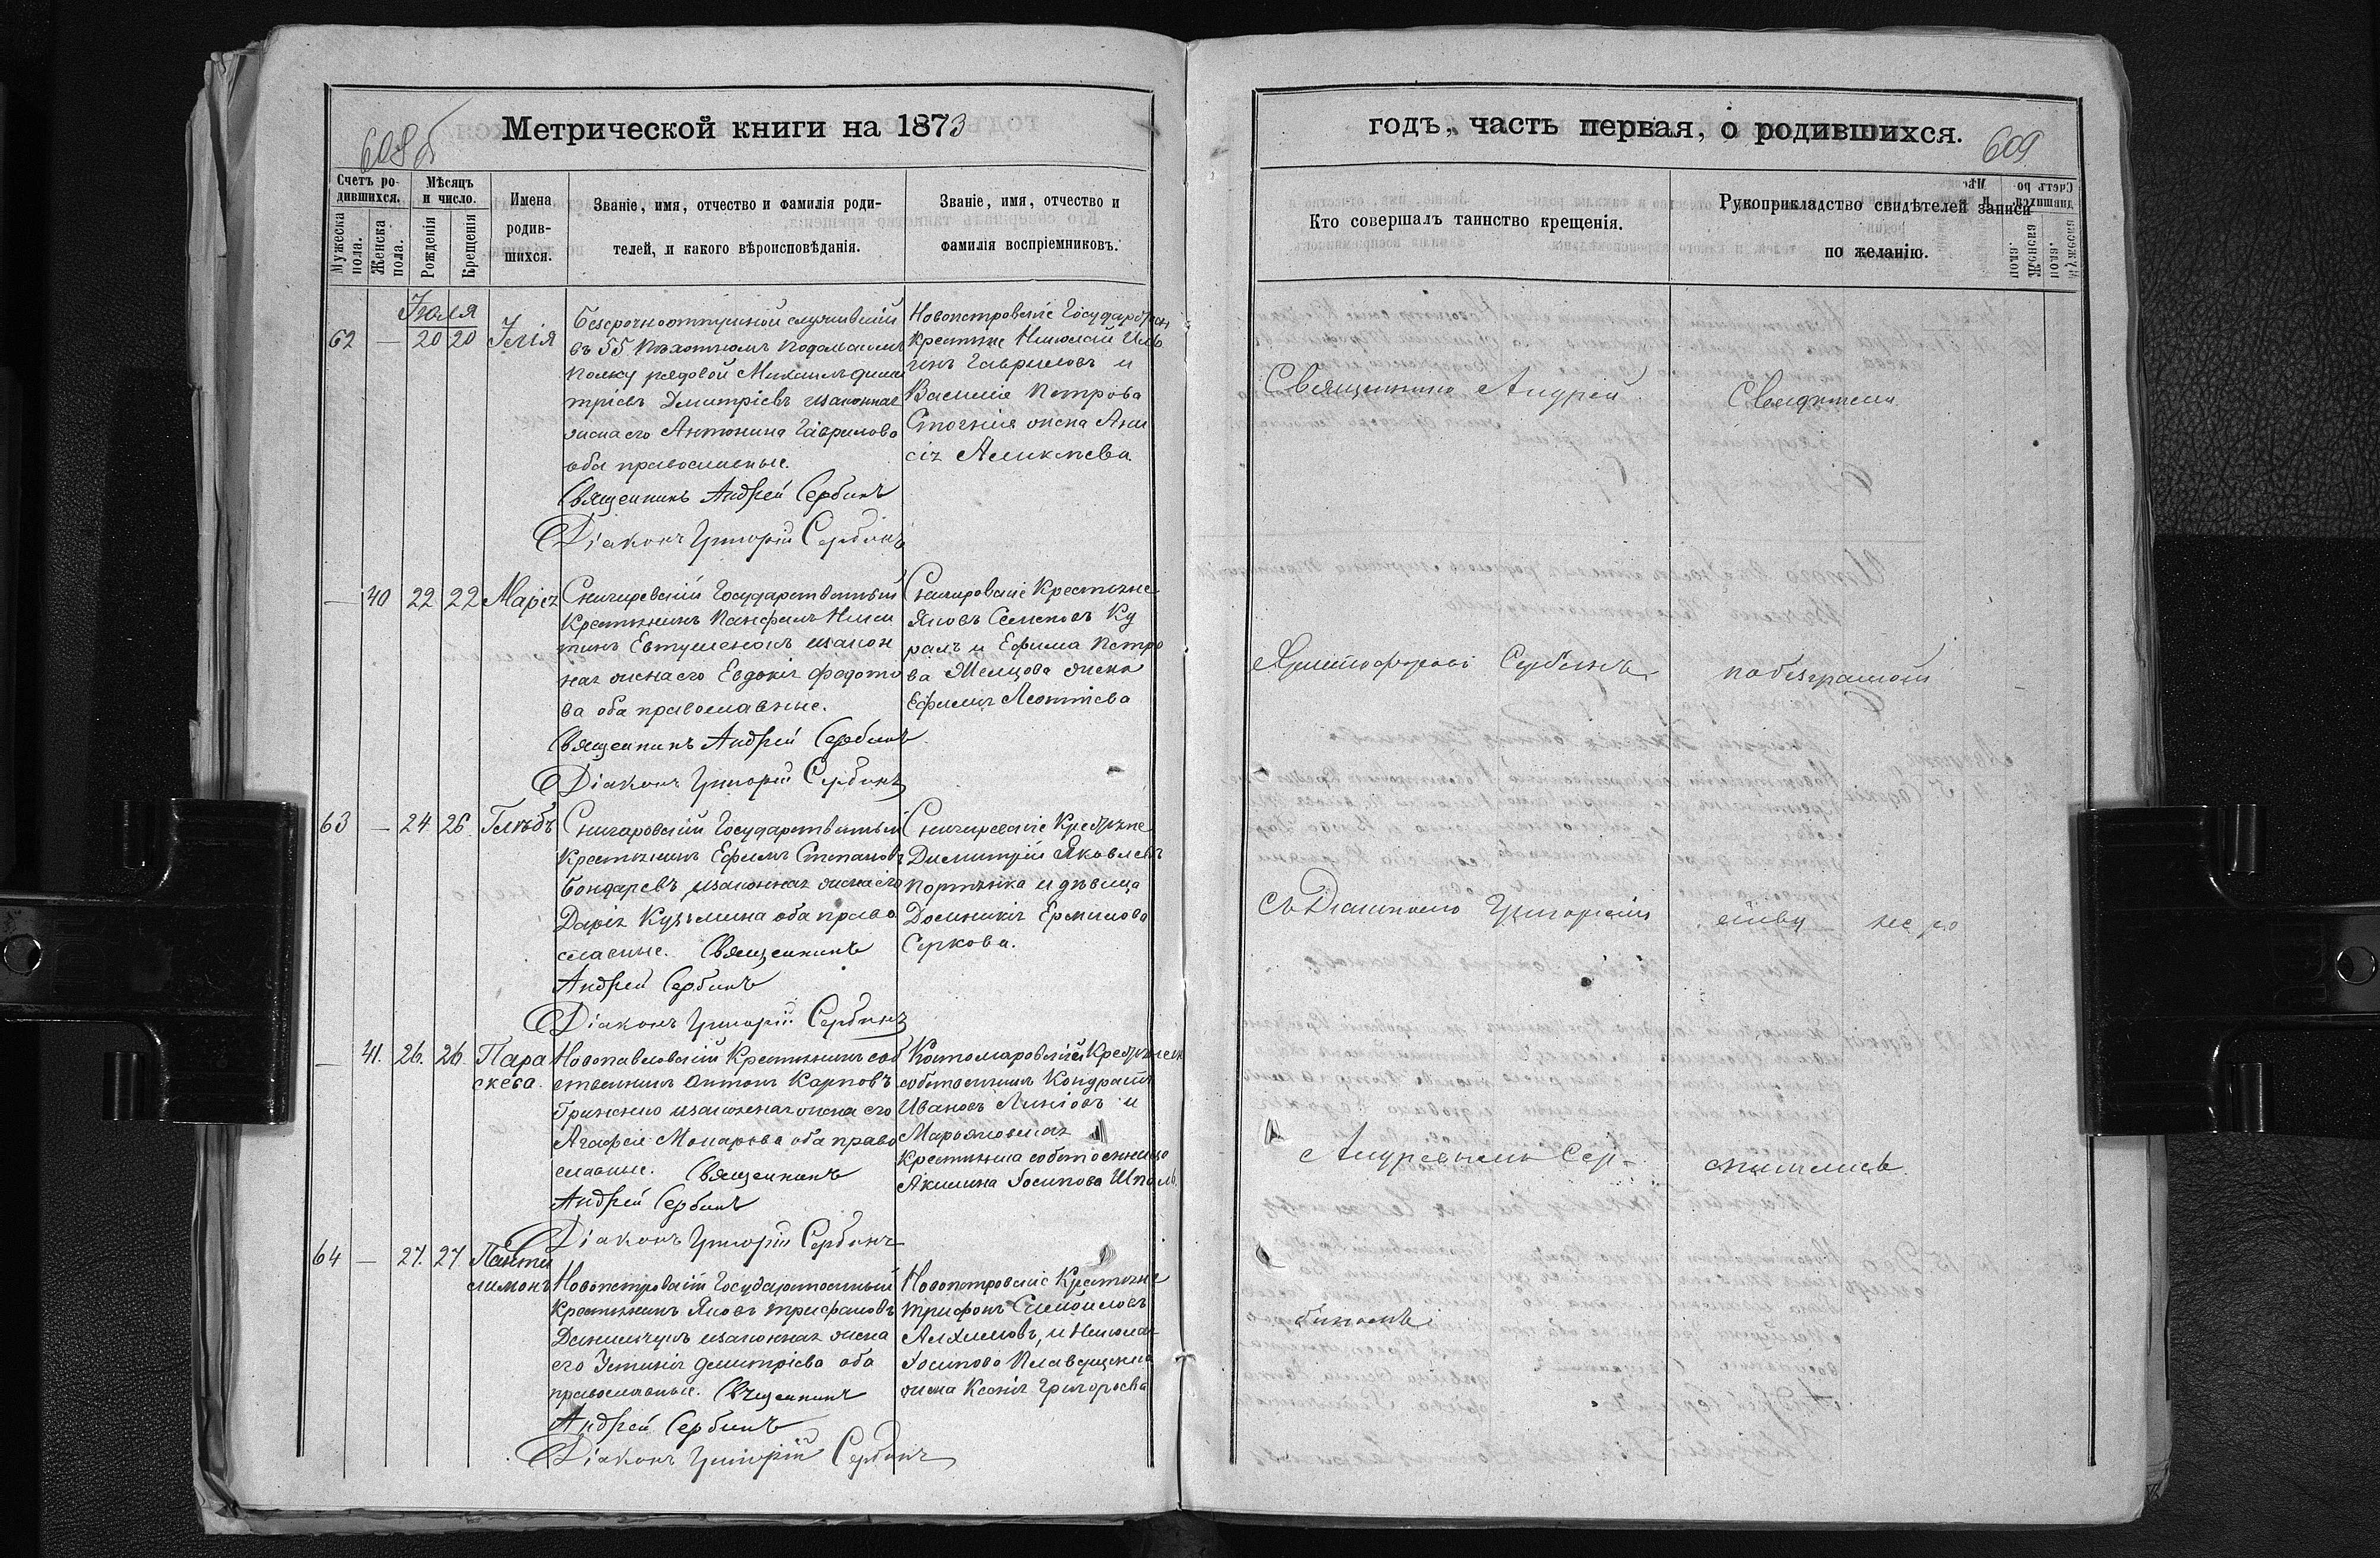 Метрической книги на 1873
608 б
Счетъ ро-
дившихся.
Мужеска
пола.
Женска
пола.
Мѣсяцъ
и число.
Рожденія
Крещенія
Имена
родив-
шихся.
Званіе, имя, отчество и фамилія роди-
телей, и какого вѣроисповѣданія.
Званіе, имя, отчество и
фамилія воспріемниковъ.
Іюля
62 — 20 20 Илія
Безсрочноотпускной служившій
въ 55 Пѣхотномъ Подольскомъ
полку рядовой Михаилъ Дими
тріевъ Дмитріевъ изаконная
жена его Антонина Гаврилова
оба православные.
Священникъ Андрей Сербинъ
Діаконъ Григорій Сербинъ
Новопетровскіе Государствен
крестьяне Николай
Гавриловъ и
Василія Петрова
жена
Аликсѣева
— 40 22 22 Марія
Снигиревскій Государственный
Крестьянинъ Панфилъ Ники
тинъ Евтушенокъ изакон
ная жена его Евдокія Федото
ва оба православные.
Священникъ Андрей Сербинъ
Діаконъ Григорій Сербинъ
Снигировскіе Крестьяне
Яковъ Семеновъ Ку
и Ефима Петро
ва жена
Ефимія Леонтіева
63 — 24 26 Глѣбъ
Снигаровскій Государственный
Крестьянинъ Ефимъ Степановъ
Бондаревъ изаконная жена его
Дарія Кузьмина оба право
славные. Священникъ
Андрей Сербинъ
Діаконъ Григорій Сербинъ
Снигиревскіе Крестьяне
Димитрій Яковлевъ
и дѣвица
Домникія Ермилова
Серкова.
— 41. 26. 26. Пара
скева.
Новопавловскій Крестьянинъ соб
ственникъ Антонъ Карповъ
Гриненко изаконная жена его
Агафія Макарова оба право
славные. Священникъ
Андрей Сербинъ
Діаконъ Григорій Сербинъ
Костомаровскій Крестьянинъ
собственникъ Кондратъ
Ивановъ и
Марьяновская
крестьянка собственница
Акилина Іосипова
64 — 27. 27 Панте
лимонъ
Новопетровскій Государственный
Крестьянинъ Яковъ Трифановъ
изаконная жена
его Устинія Димитріева оба
православные. Священникъ
Андрей Сербинъ
Діаконъ Григорій Сербинъ
Новопетровскіе Крестьяне
Трифонъ Самойловъ
Алхимовъ, и Николая
Іосипова
жена Ксенія Григорьева
годъ, часть первая, о родившихся.
609
Кто совершалъ таинство крещенія.
Рукоприкладство свидѣтелей записи
по желанію.
Священникъ Андрей
Свидѣтели
Христофоровъ Сербинъ
по безграмот
съ Діакономъ Григоріемъ
ству не ро
Андреевымъ Сер-
списались
биномъ